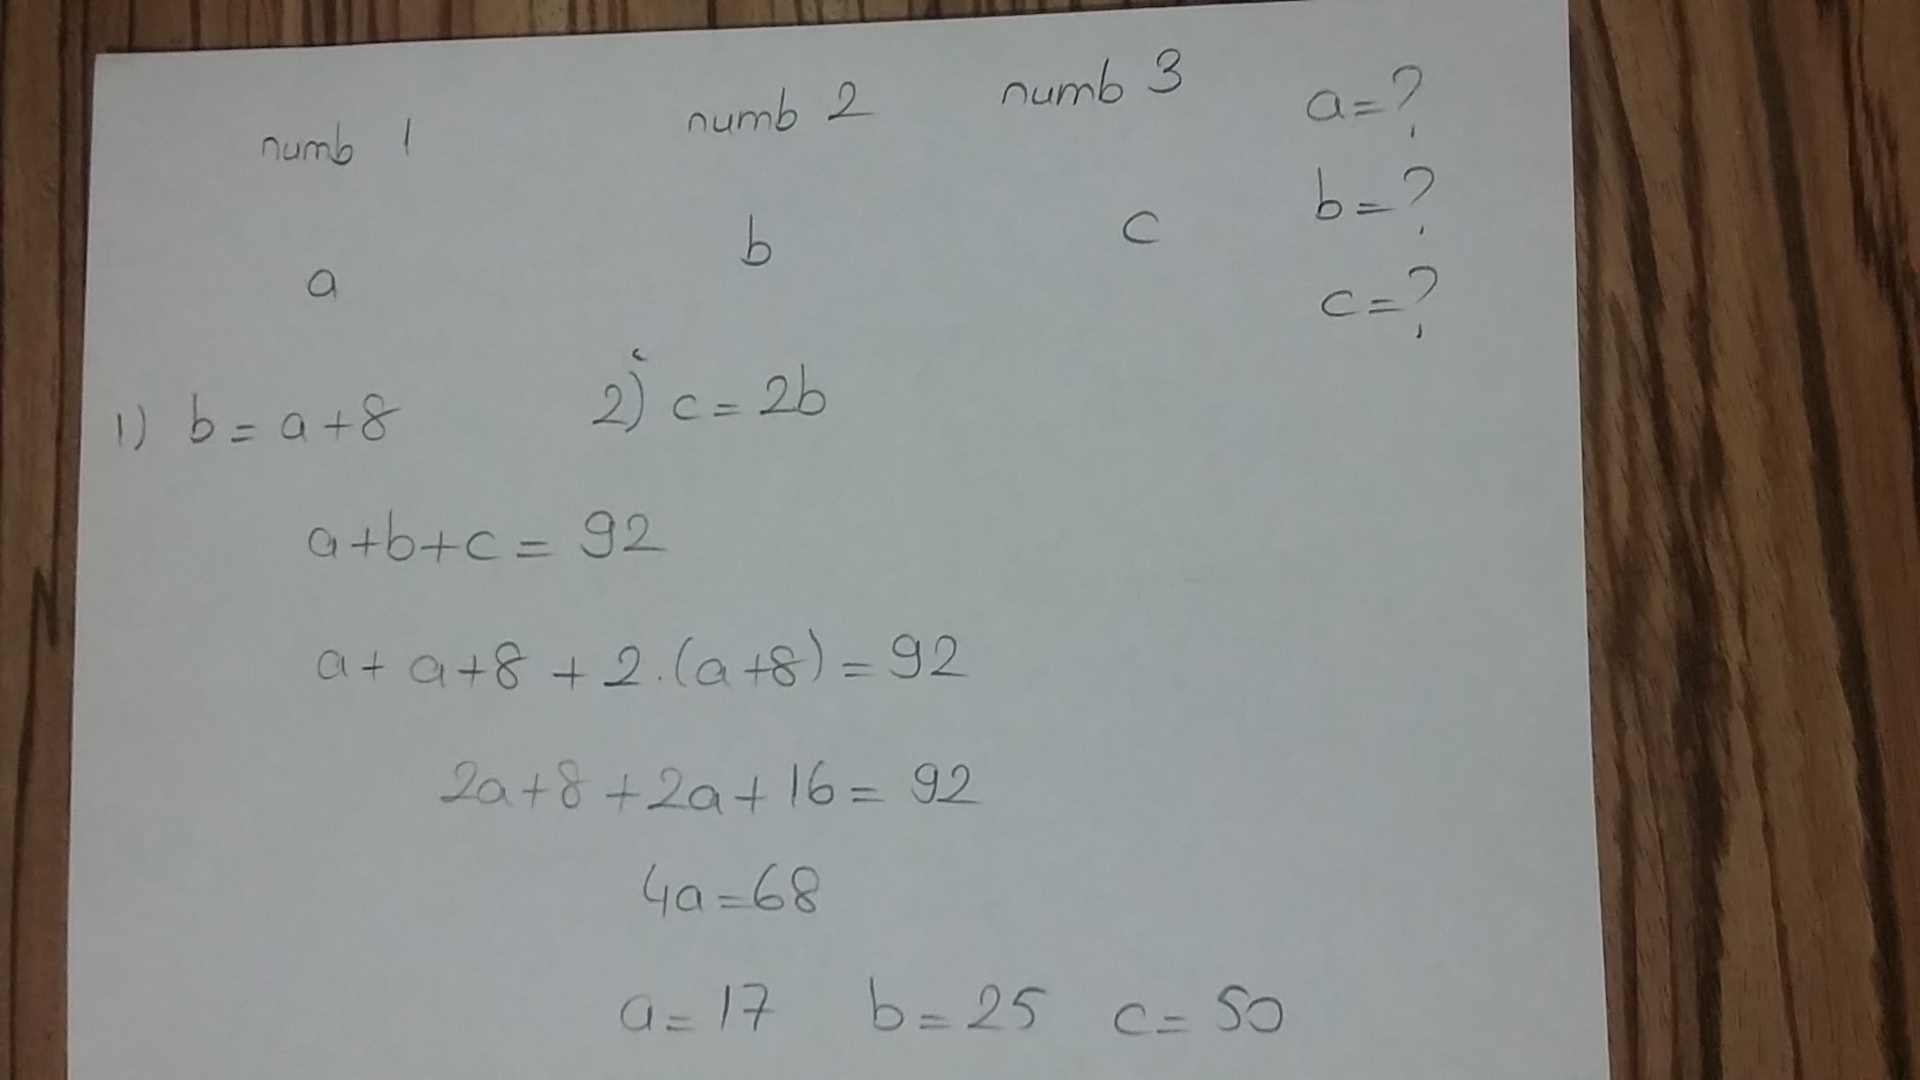 numb 1 numb 2 numb 3 a=?
a b c b=?
c=?
1) b=a+8 2) c=2b
a+b+c=92
a+a+8+2.(a+8)=92
2a+8+2a+16=92
4a=68
a=17 b=25 c=50